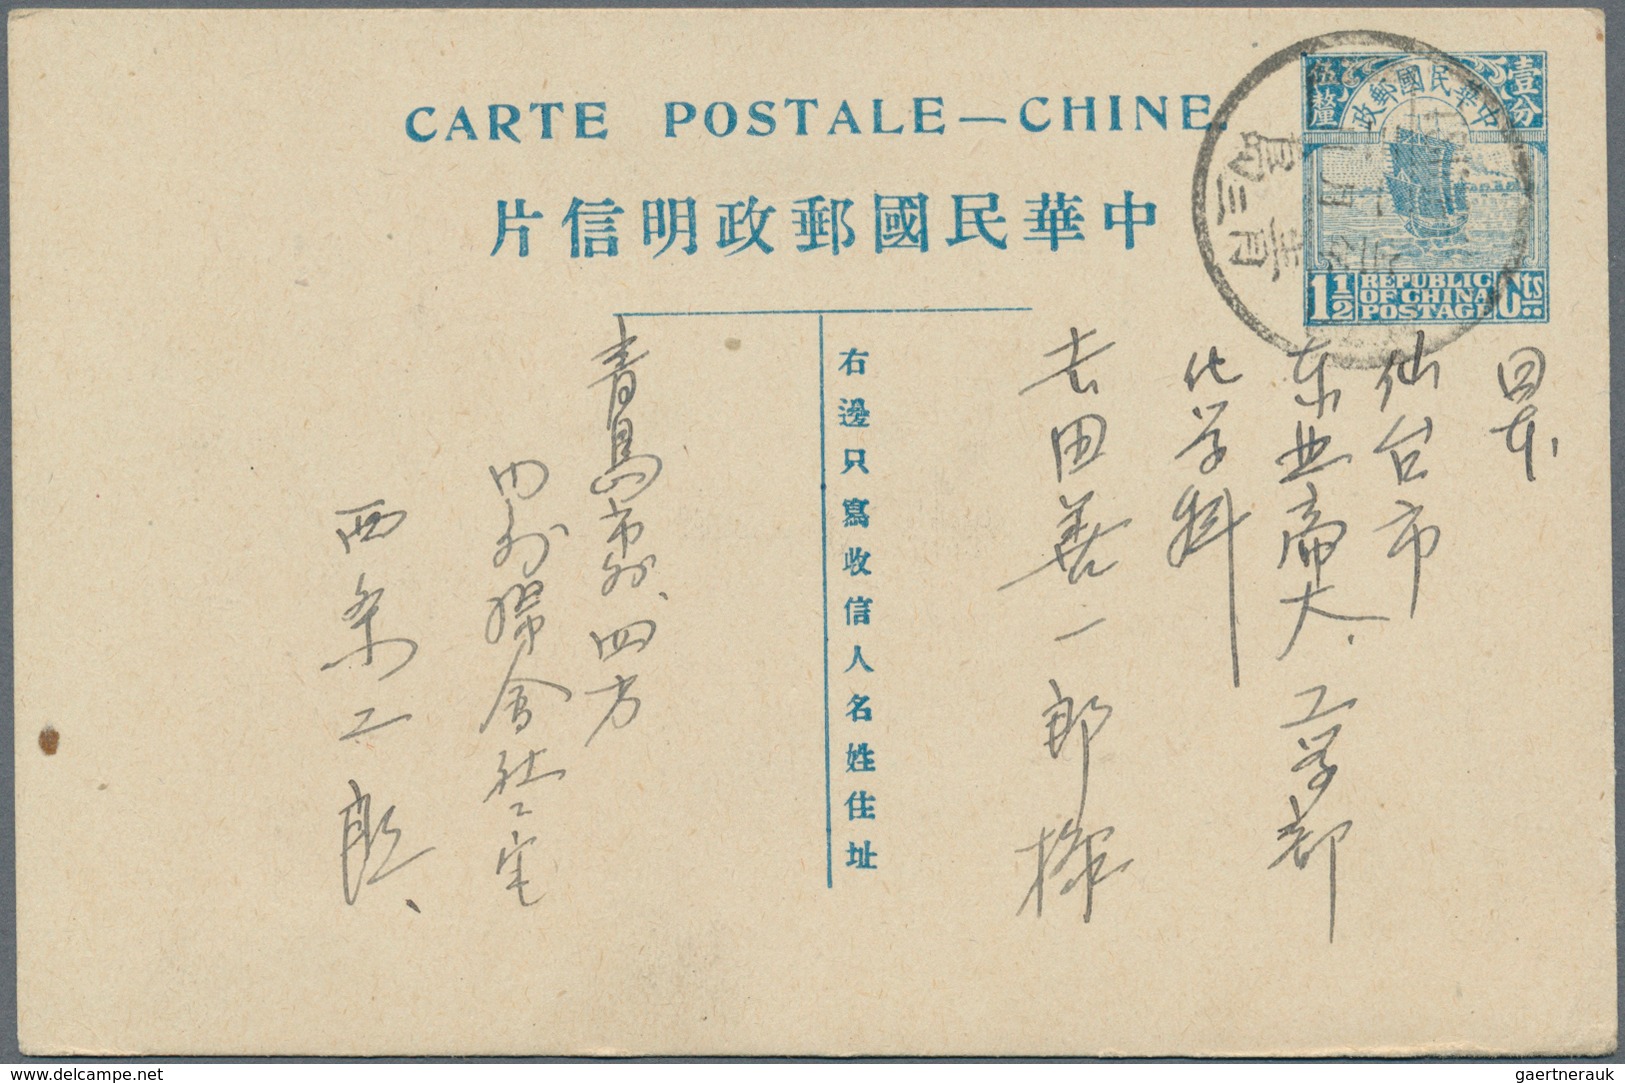 CARTE POSTALE—CHINE.
中華民國郵政明信片
中華民國郵政
壹分
伍釐
1½ REPUBLIC OF CHINA POSTAGE Cts
日本、
仙台市
東北帝大、工学部
化学科
吉田善一郎様
右邊只寫收信人名姓住址
青島市外、四方
内外綿会社社宅
西条二郎、
www.delcampe.net
gaertnerauk